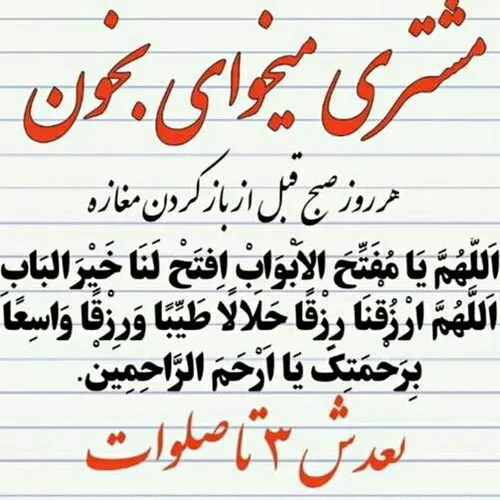 مشتری میخوای بخون
هر روز صبح قبل از باز کردن مغازه
اَللّهُمَّ یَا مُفَتِّحَ الاَبْوَابْ اِفتَحْ لَنَا خَیْرَ البَابِ
اَللّهُمَّ ارْزُقْنَا رِزْقًا حَلَالًا طَیِّبًا وَرِزْقًا وَاسِعًا
بِرَحْمَتِکَ یَا اَرْحَمَ الرَّاحِمِینْ.
بعدش ۳ تا صلوات